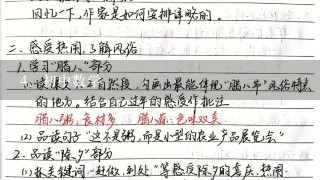 回忆一下,作家是如何安排详略的。
二、感受热闹,了解风俗
1.学习"腊八"部分
(1)读课文1-2自然段,勾画出最能体现"腊八节"风俗特点
的地方。结合自己过年的感受作批注
腊八粥:食材多 腊八蒜:色味双美
(2)品读句子"这不是粥,而是小型的农业产品展览会"
2.品读"除夕"部分
(1)抓关键词"赶做、到处"等感受除夕的喜庆、热闹
4、初中数学